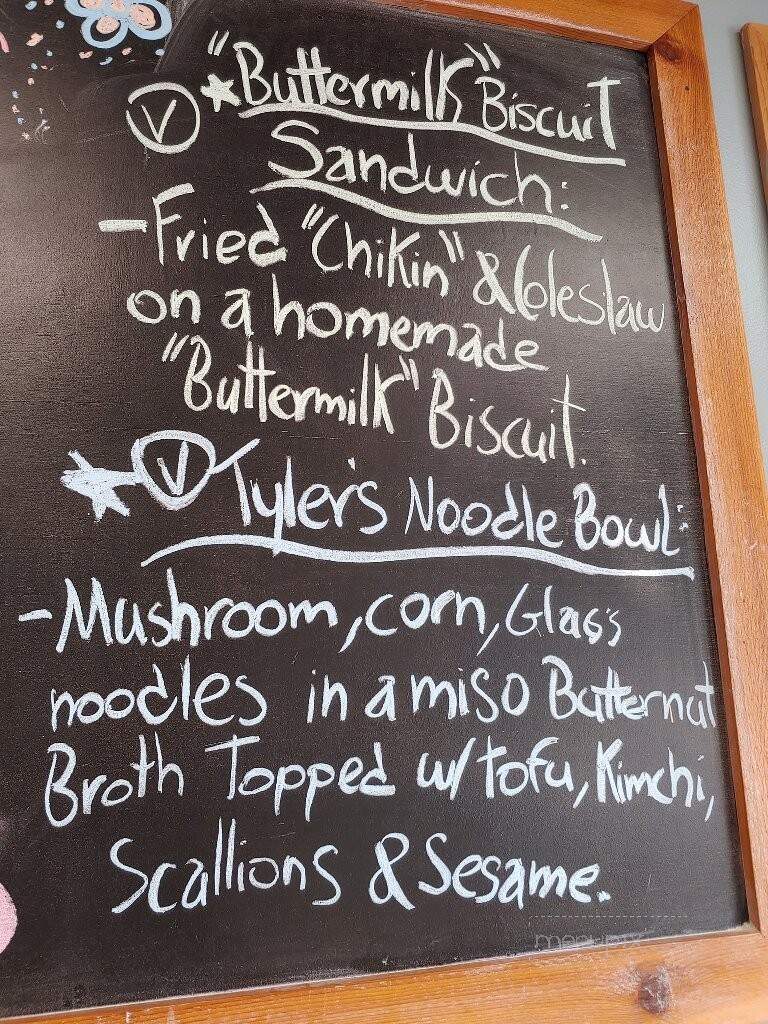 "Buttermilk" Biscuit
V *
Sandwich:
-Fried "Chikin" & Coleslaw
on a homemade
"Buttermilk" Biscuit.
V Tyler's Noodle Bowl:
-Mushroom, corn, Glass
noodles in a miso Butternut
Broth Topped w/ tofu, Kimchi,
Scallions & Sesame.